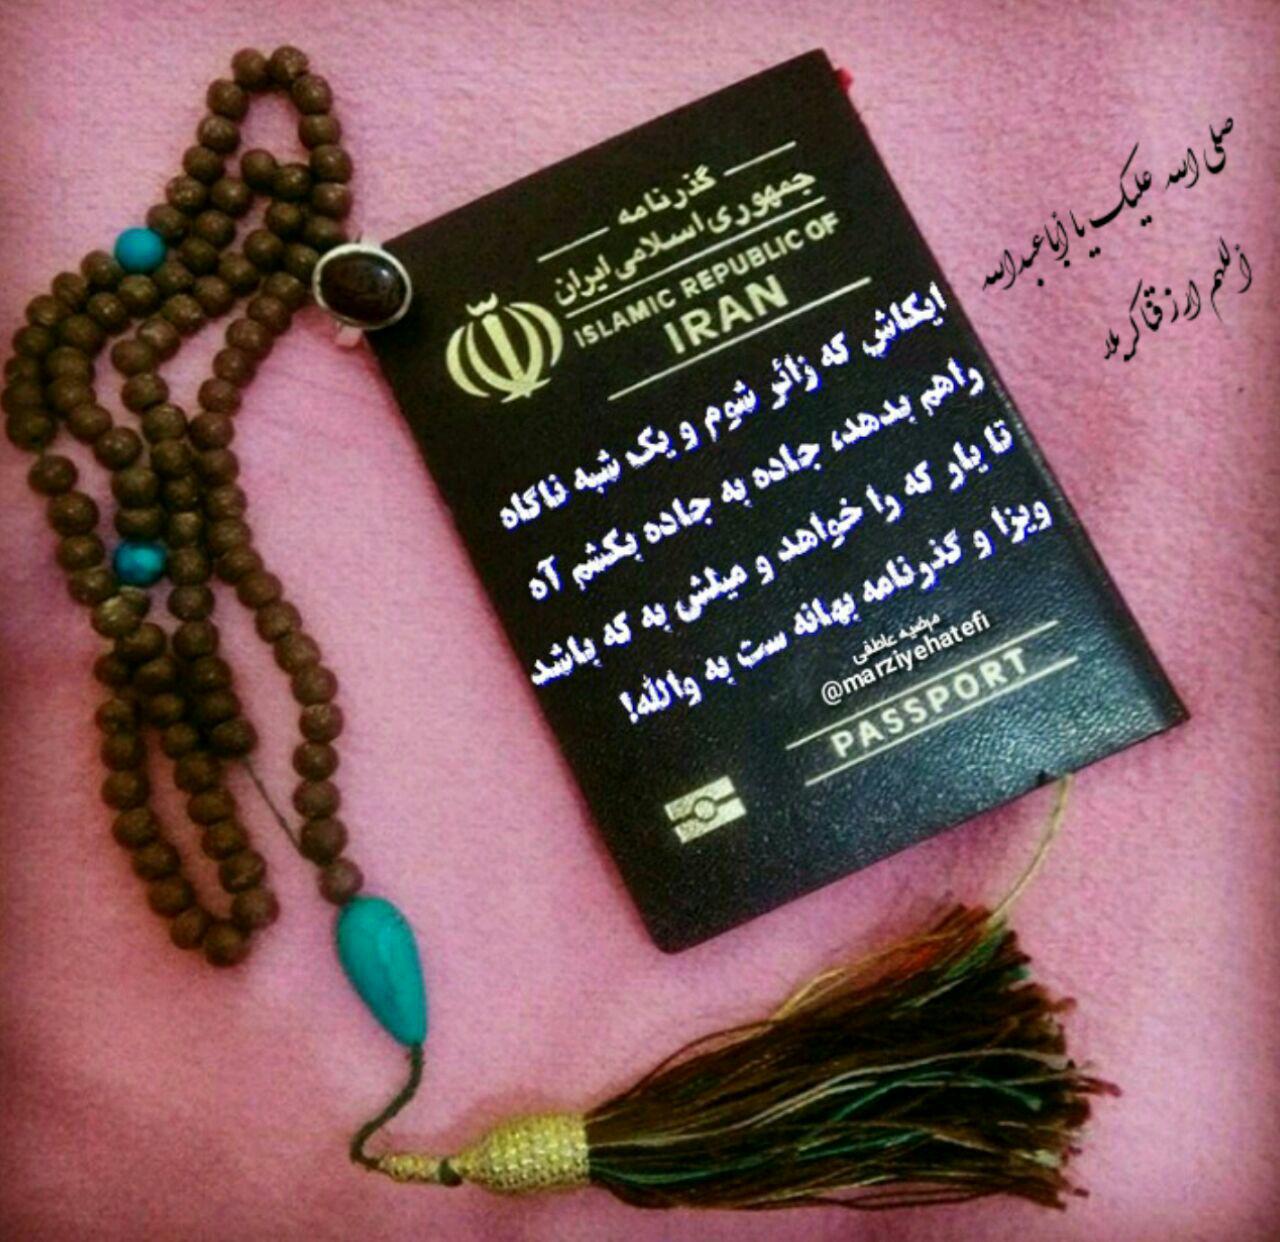 صلی الله علیک یا أباعبدالله
اللهم ارزقنا کربلا
گذرنامه
جمهوری اسلامی ایران
ISLAMIC REPUBLIC OF
IRAN
ایکاش که زائر شوم و یک شبه ناگاه
راهم بدهد، جاده به جاده بکشم آه
تا یار که را خواهد و میلش به که باشد
ویزا و گذرنامه بهانه ست به والله!
مرضیه عاطفی
@marziyehatefi
PASSPORT